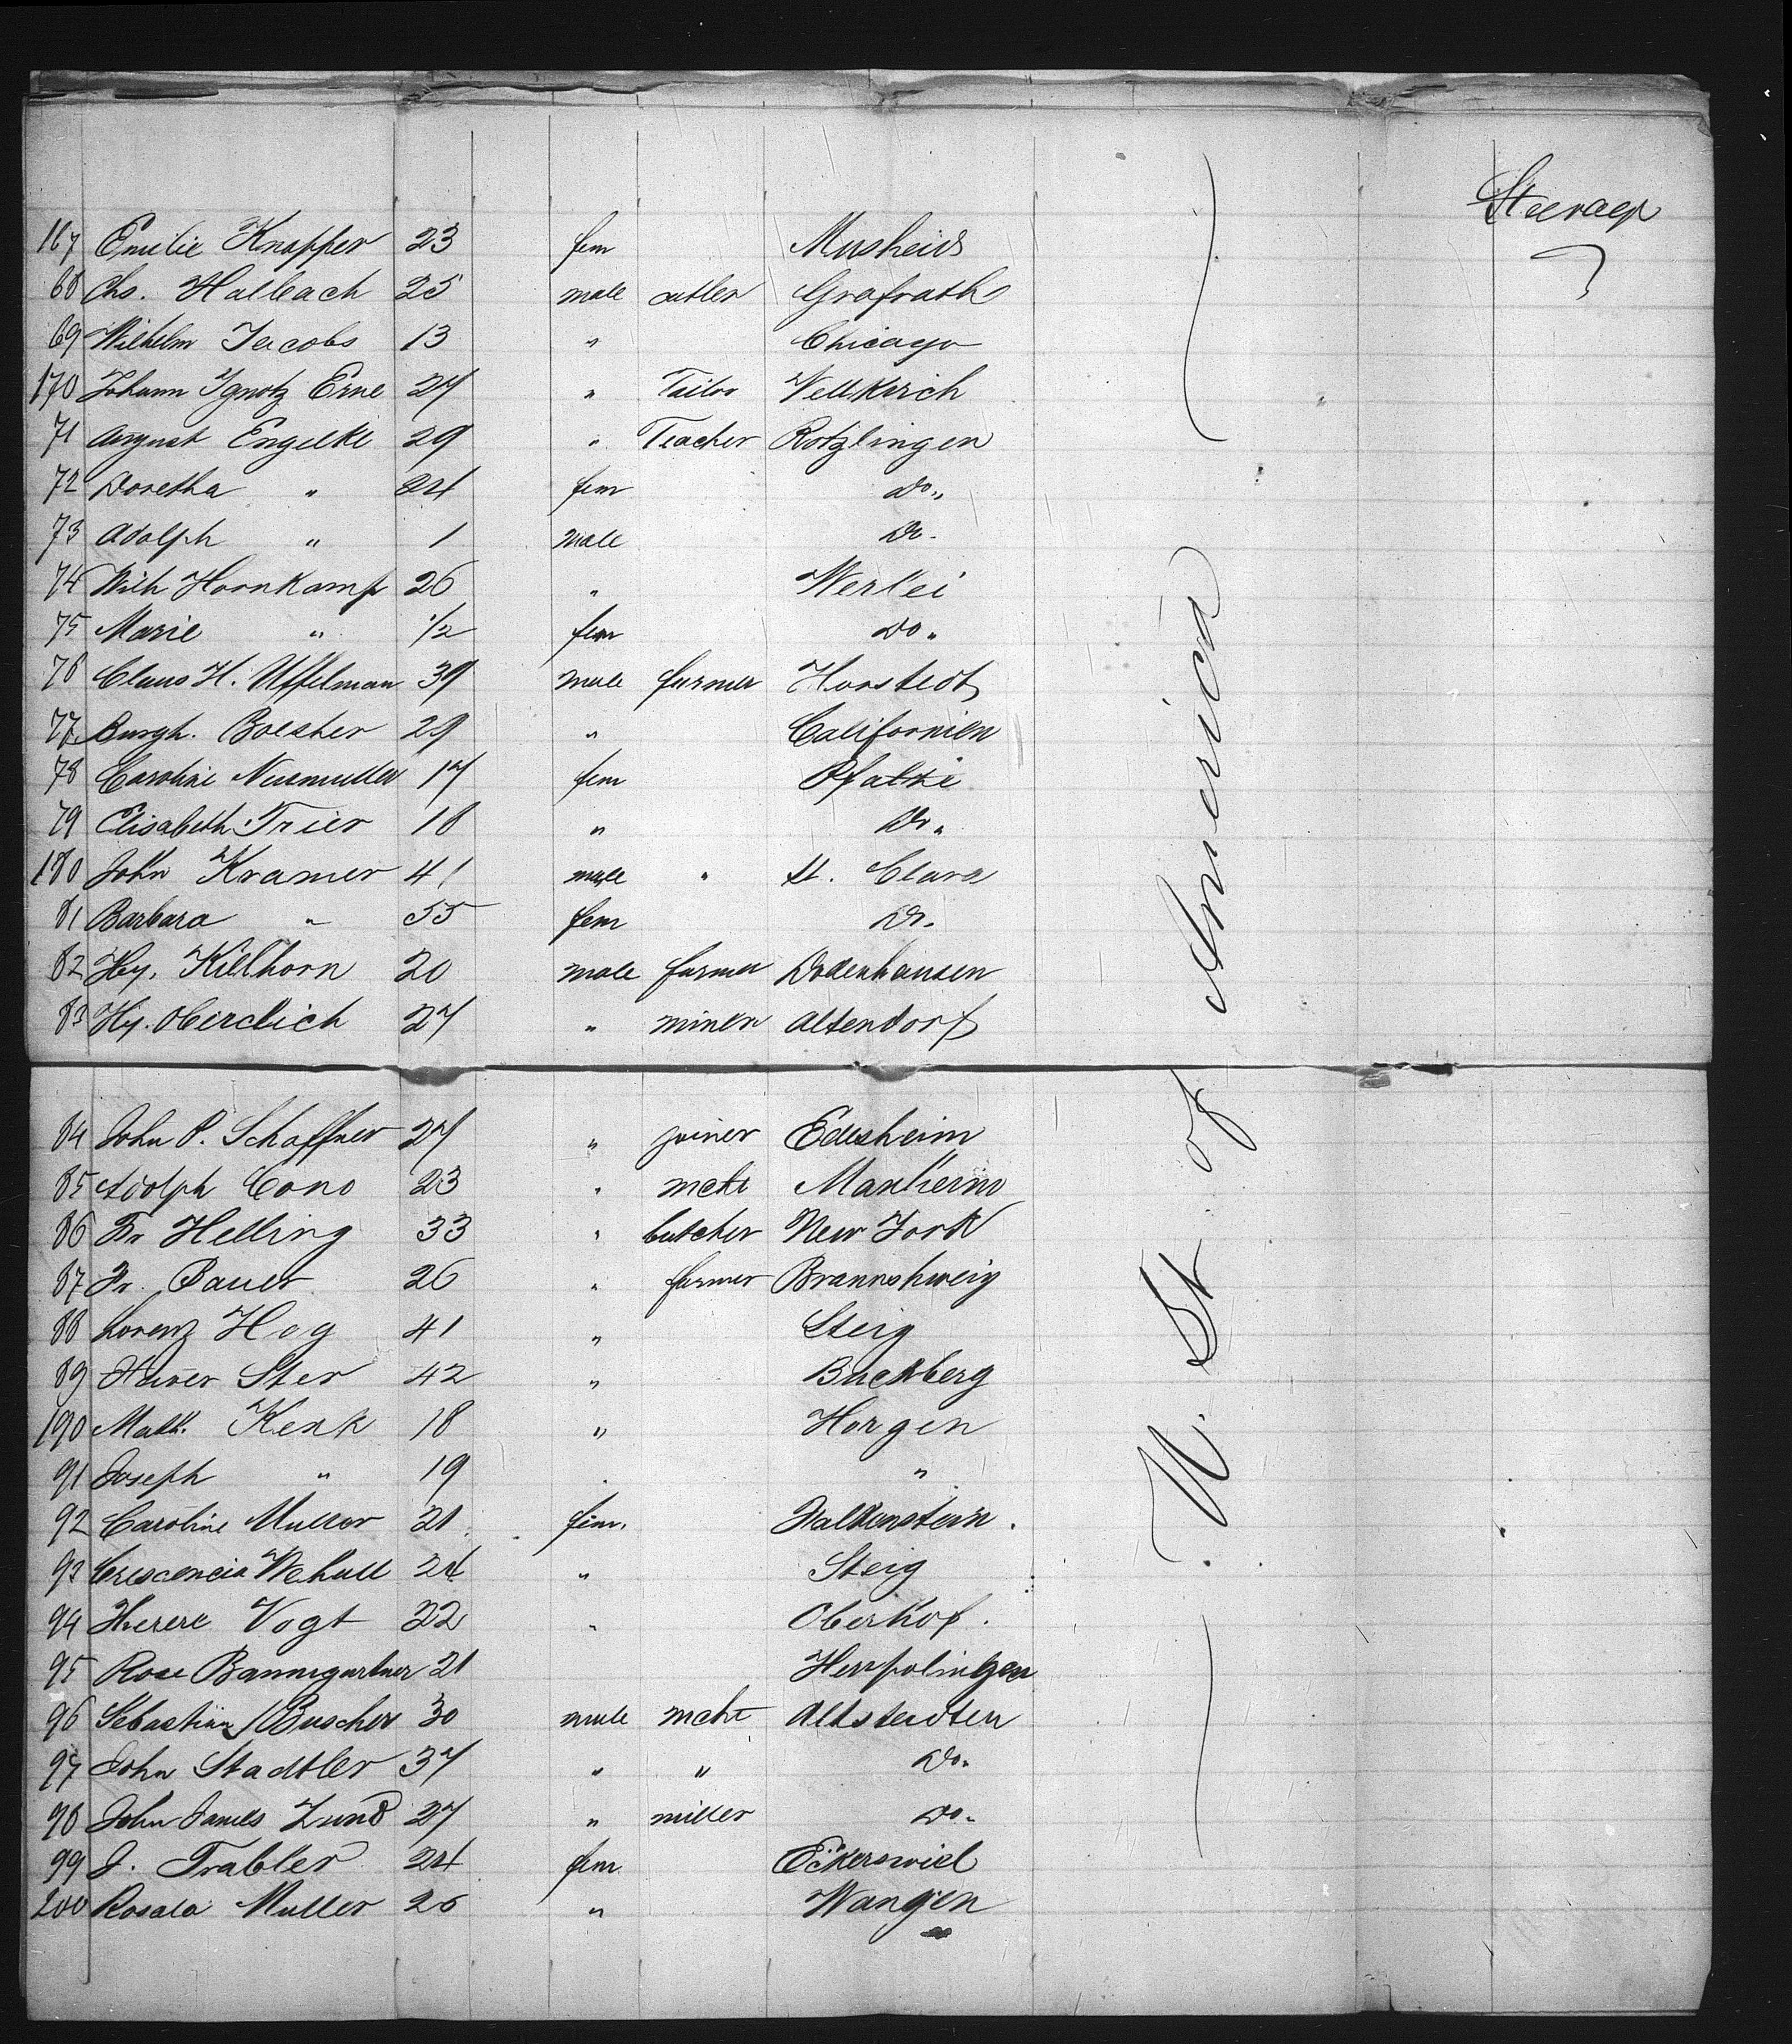 Steerage
167 Emilie Knapper 23 fem Musheid
68 Chs. Halbach 25 male cutler Grafrath
69 Wilhelm Jacobs 13 " Chicago
170 Johann Ignatz Erne 27 " Tailor Veltkirch
71 August Engelke 29 " Teacher Rotzlingen
72 Doretha " 24 fem Do "
73 Adolph " 1 male Do.
74 Wilh Hornkamp 26 " Werlei
75 Marie " 1/2 fem Do "
76 Claus H. Uffelman 39 male farmer Horstedt
77 Burgh. Boesher 29 " Californien
78 Caroline Neumuller 17 fem
79 Elisabeth Trier 18 " Do "
180 John Kramer 41 male " St. Clara
81 Barbara " 55 fem Do.
82 Hy. Killhorn 20 male farmer Dodenhausen
83 Hy. Oberdich 27 " miner Altendorf
84 John P. Schaffner 27 " joiner Edesheim
85 Adolph Cono 23 " mcht
86 Fr Helling 33 " butcher New York
87 Fr. Bauer 26 " farmer Braunshweig
88 Lorenz Hog 41 " Steig
89 Xaver Ster 42 " Buckberg
190 Math. Kenk 18 " Horgen
91 Joseph " 19 . "
92 Caroline Muller 21 fem. Falkenstein.
93 Crescencia Wehull 24 " Steig
94 Therere Vogt 22 " Oberhof.
95 Rose Baumgartner 21 Herpolingen
96 Sebastian Buscher 30 male mcht Altstedten
97 John Stadtler 37 " " Do.
98 John James Zund 27 " miller Do.
99 J. Trabler 24 fem Eckerswiel
200 Rosala Muller 26 " Wangen
U. St of America